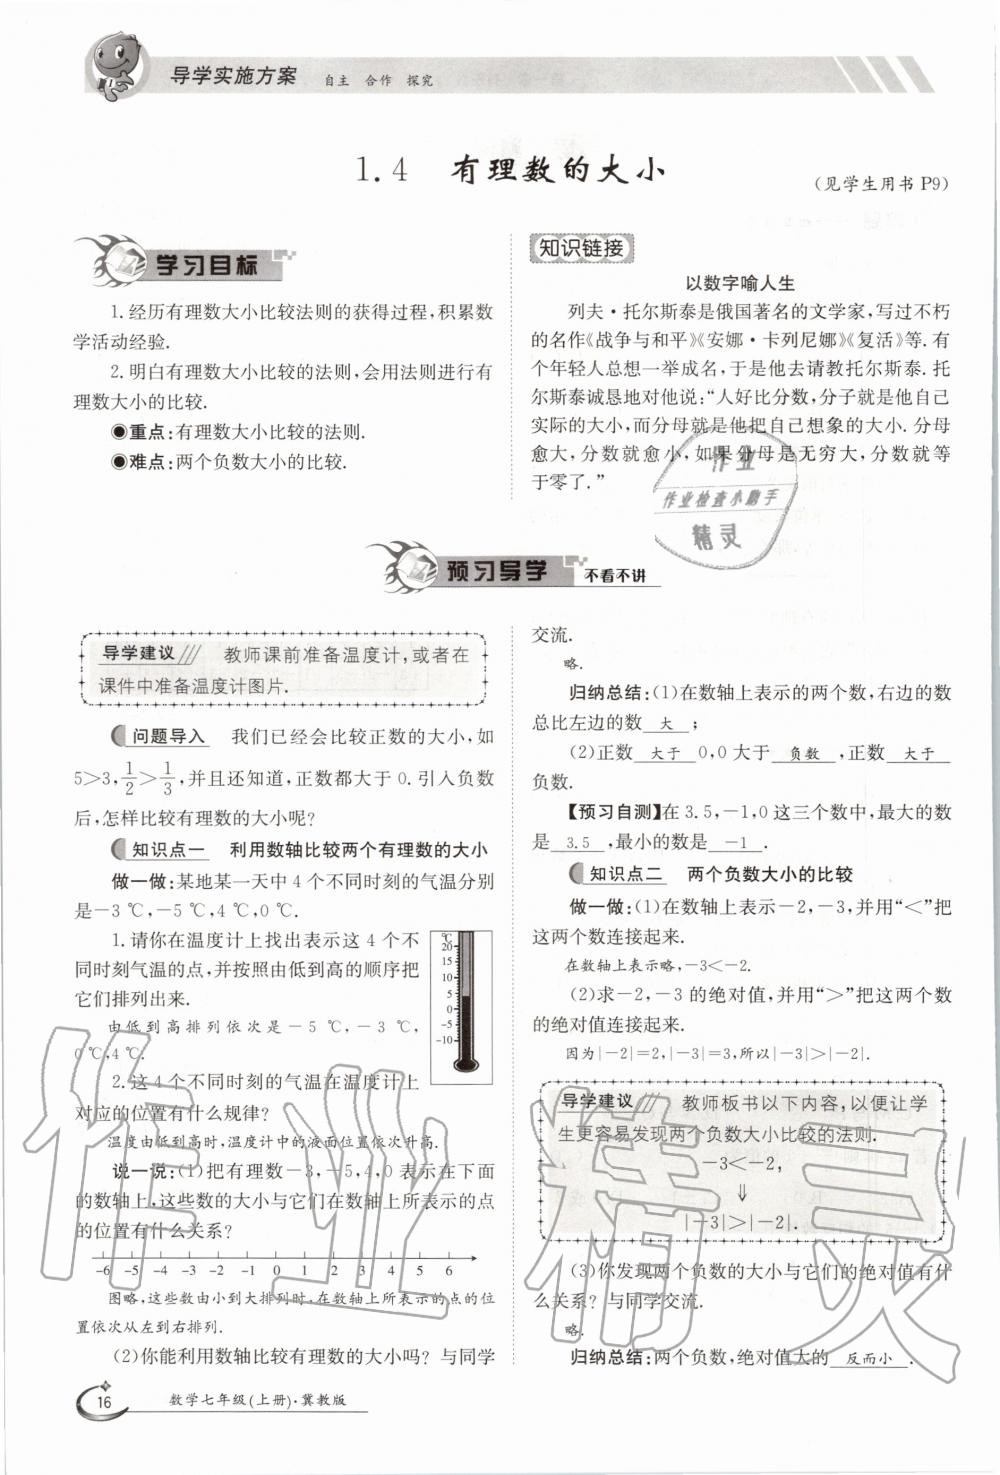 导学实施方案 自主 合作 探究
1.4 有理数的大小
(见学生用书 P9)
学习目标
1.经历有理数大小比较法则的获得过程,积累数
学活动经验.
2.明白有理数大小比较的法则,会用法则进行有
理数大小的比较.
◉重点:有理数大小比较的法则.
◉难点:两个负数大小的比较.
知识链接
以数字喻人生
列夫·托尔斯泰是俄国著名的文学家,写过不朽
的名作《战争与和平》《安娜·卡列尼娜》《复活》等.有
个年轻人总想一举成名,于是他去请教托尔斯泰.托
尔斯泰诚恳地对他说:“人好比分数,分子就是他自己
实际的大小,而分母就是他把自己想象的大小.分母
愈大,分数就愈小,如果分母是无穷大,分数就等
于零了.”
作业
作业检查小助手
精灵
预习导学 不看不讲
导学建议 教师课前准备温度计,或者在
课件中准备温度计图片.
问题导入 我们已经会比较正数的大小,如
5>3,1/2>1/3,并且还知道,正数都大于0.引入负数
后,怎样比较有理数的大小呢?
知识点一 利用数轴比较两个有理数的大小
做一做:某地某一天中4个不同时刻的气温分别
是-3 ℃,-5 ℃,4 ℃,0 ℃.
1.请你在温度计上找出表示这4个不
同时刻气温的点,并按照由低到高的顺序把
它们排列出来.
由低到高排列依次是-5 ℃,-3 ℃,
0 ℃,4 ℃.
℃
20
15
10
5
0
-5
-10
2.这4个不同时刻的气温在温度计上
对应的位置有什么规律?
温度由低到高时,温度计中的液面位置依次升高.
说一说:(1)把有理数-3,-5,4,0表示在下面
的数轴上,这些数的大小与它们在数轴上所表示的点
的位置有什么关系?
-6 -5 -4 -3 -2 -1 0 1 2 3 4 5 6
图略,这些数由小到大排列时,在数轴上所表示的点的位
置依次从左到右排列.
(2)你能利用数轴比较有理数的大小吗?与同学
交流.
略.
归纳总结:(1)在数轴上表示的两个数,右边的数
总比左边的数 大 ;
(2)正数 大于 0,0大于 负数 ,正数 大于
负数.
【预习自测】在3.5,-1,0这三个数中,最大的数
是 3.5 ,最小的数是 -1 .
知识点二 两个负数大小的比较
做一做:(1)在数轴上表示-2,-3,并用“<”把
这两个数连接起来.
在数轴上表示略,-3<-2.
(2)求-2,-3的绝对值,并用“>”把这两个数
的绝对值连接起来.
因为|-2|=2,|-3|=3,所以|-3|>|-2|.
导学建议 教师板书以下内容,以便让学
生更容易发现两个负数大小比较的法则.
-3<-2,
⇓
|-3|>|-2|.
(3)你发现两个负数的大小与它们的绝对值有什
么关系?与同学交流.
略.
归纳总结:两个负数,绝对值大的 反而小 .
作业精灵
16 数学七年级(上册)·冀教版